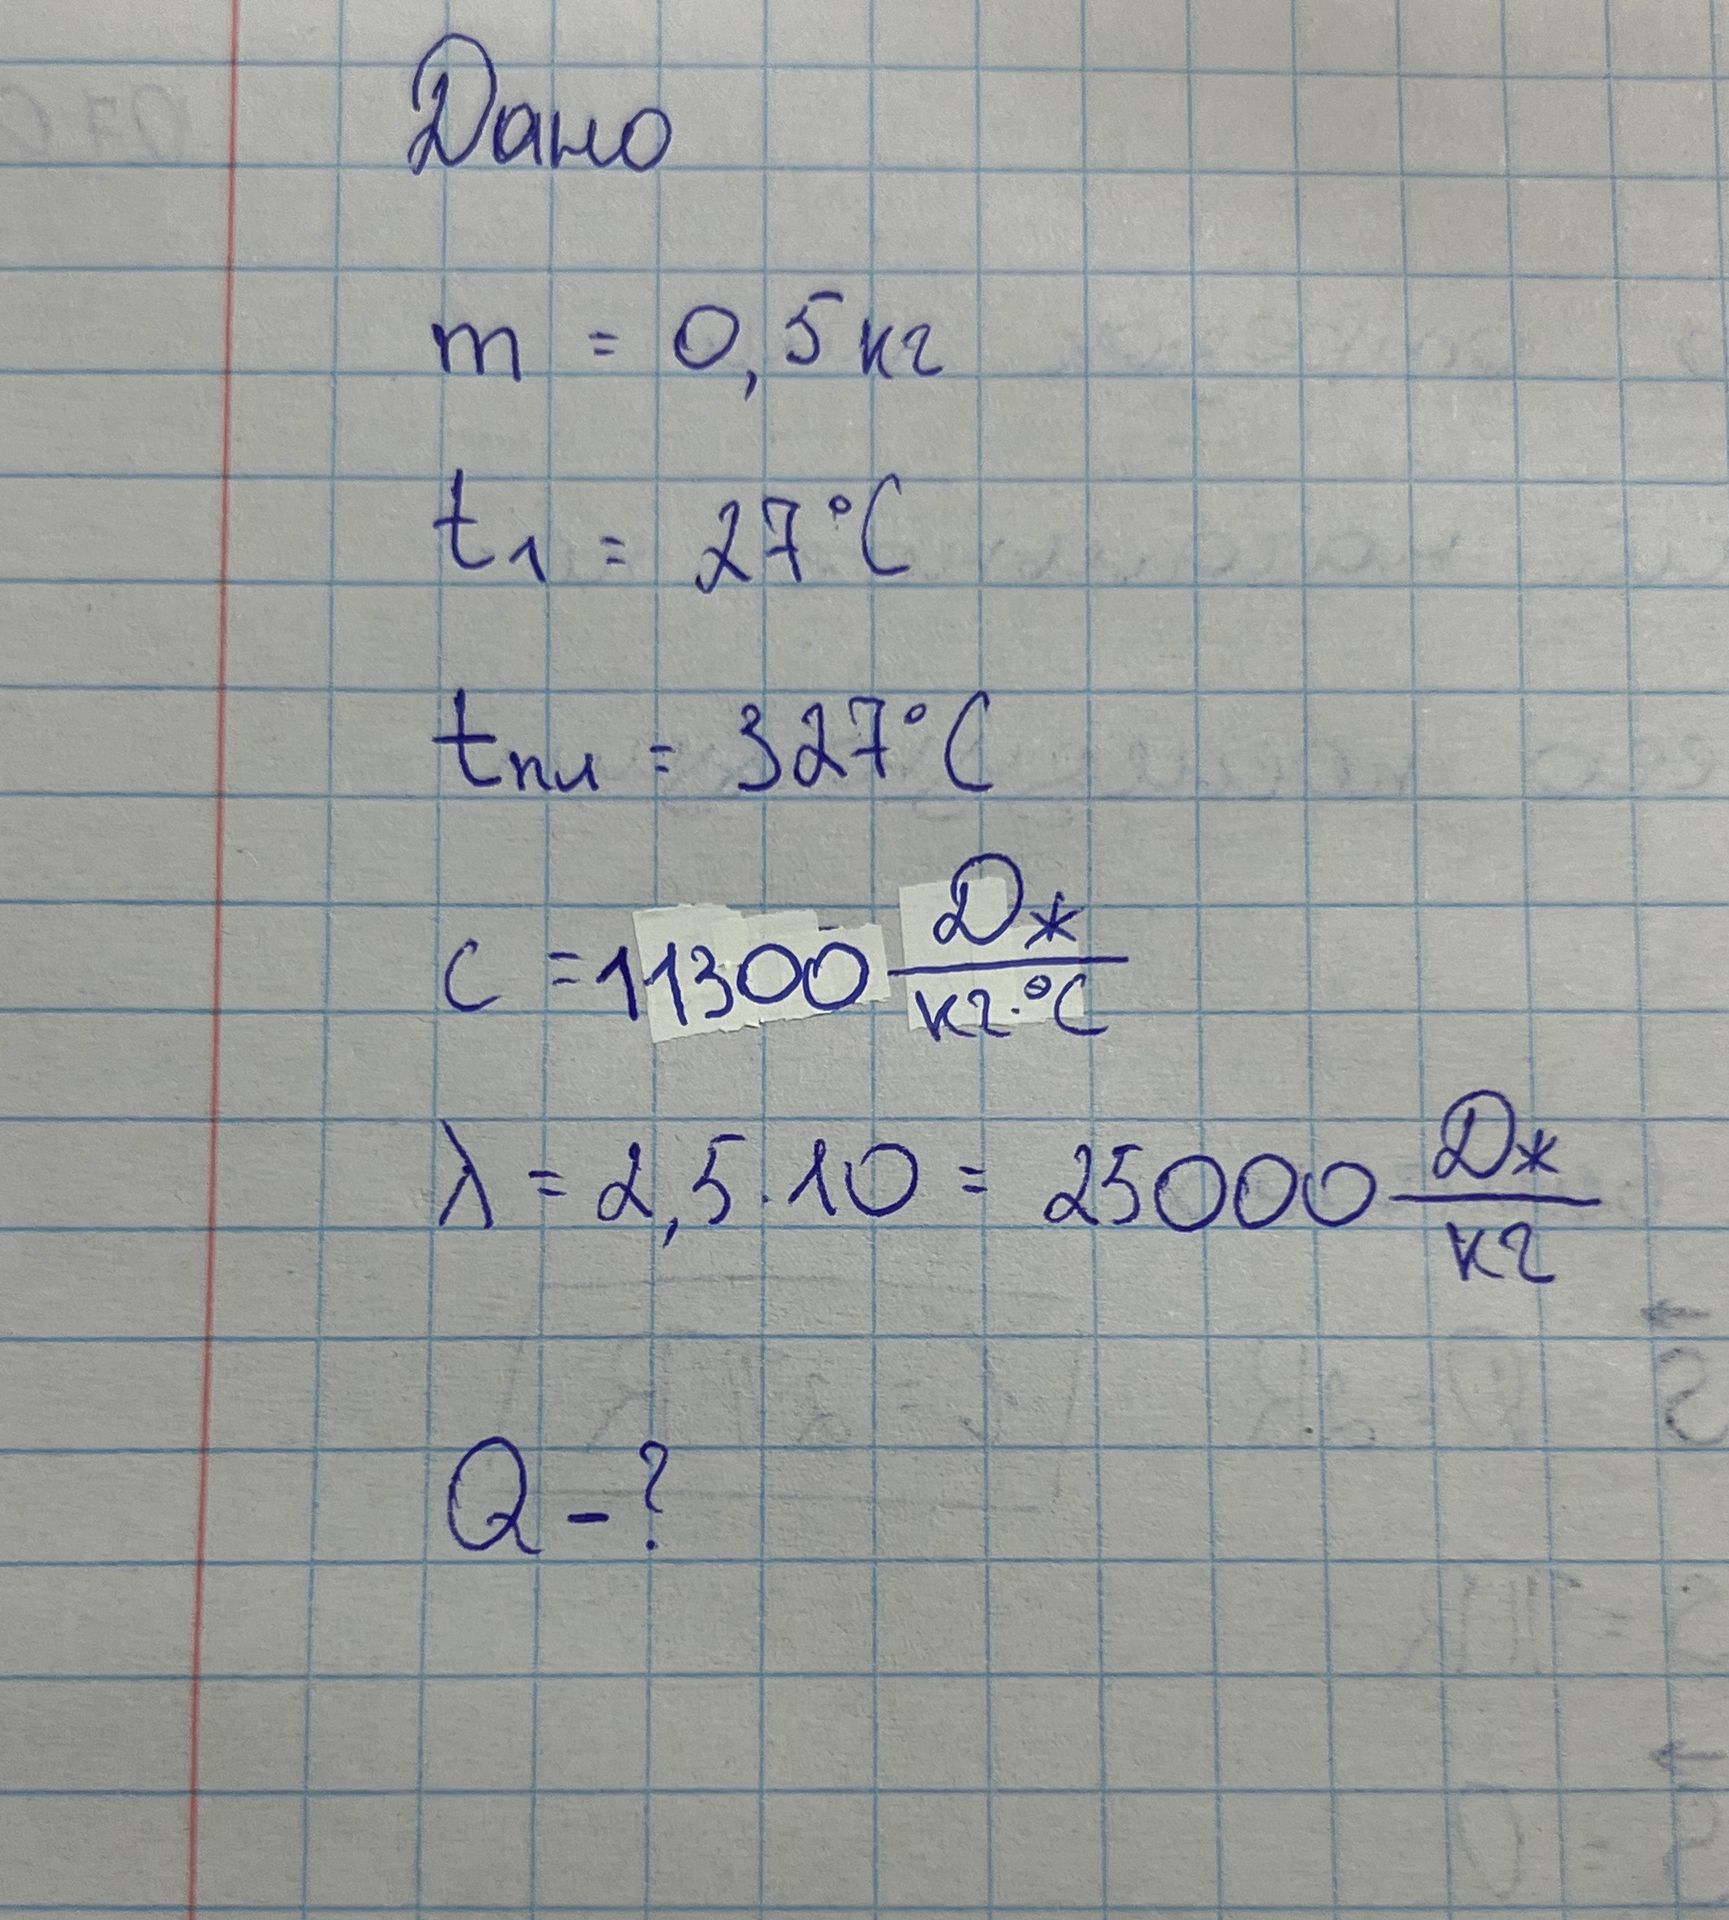 Дано
m = 0,5 кг
t₁ = 27°C
tпл = 327°C
c = 11300 Дж/кг·°C
λ = 2,5·10 = 25000 Дж/кг
Q - ?